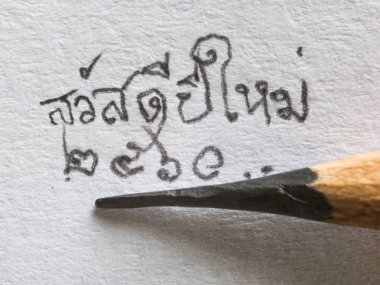 สวัสดีปีใหม่
๒๕๖๑ ..